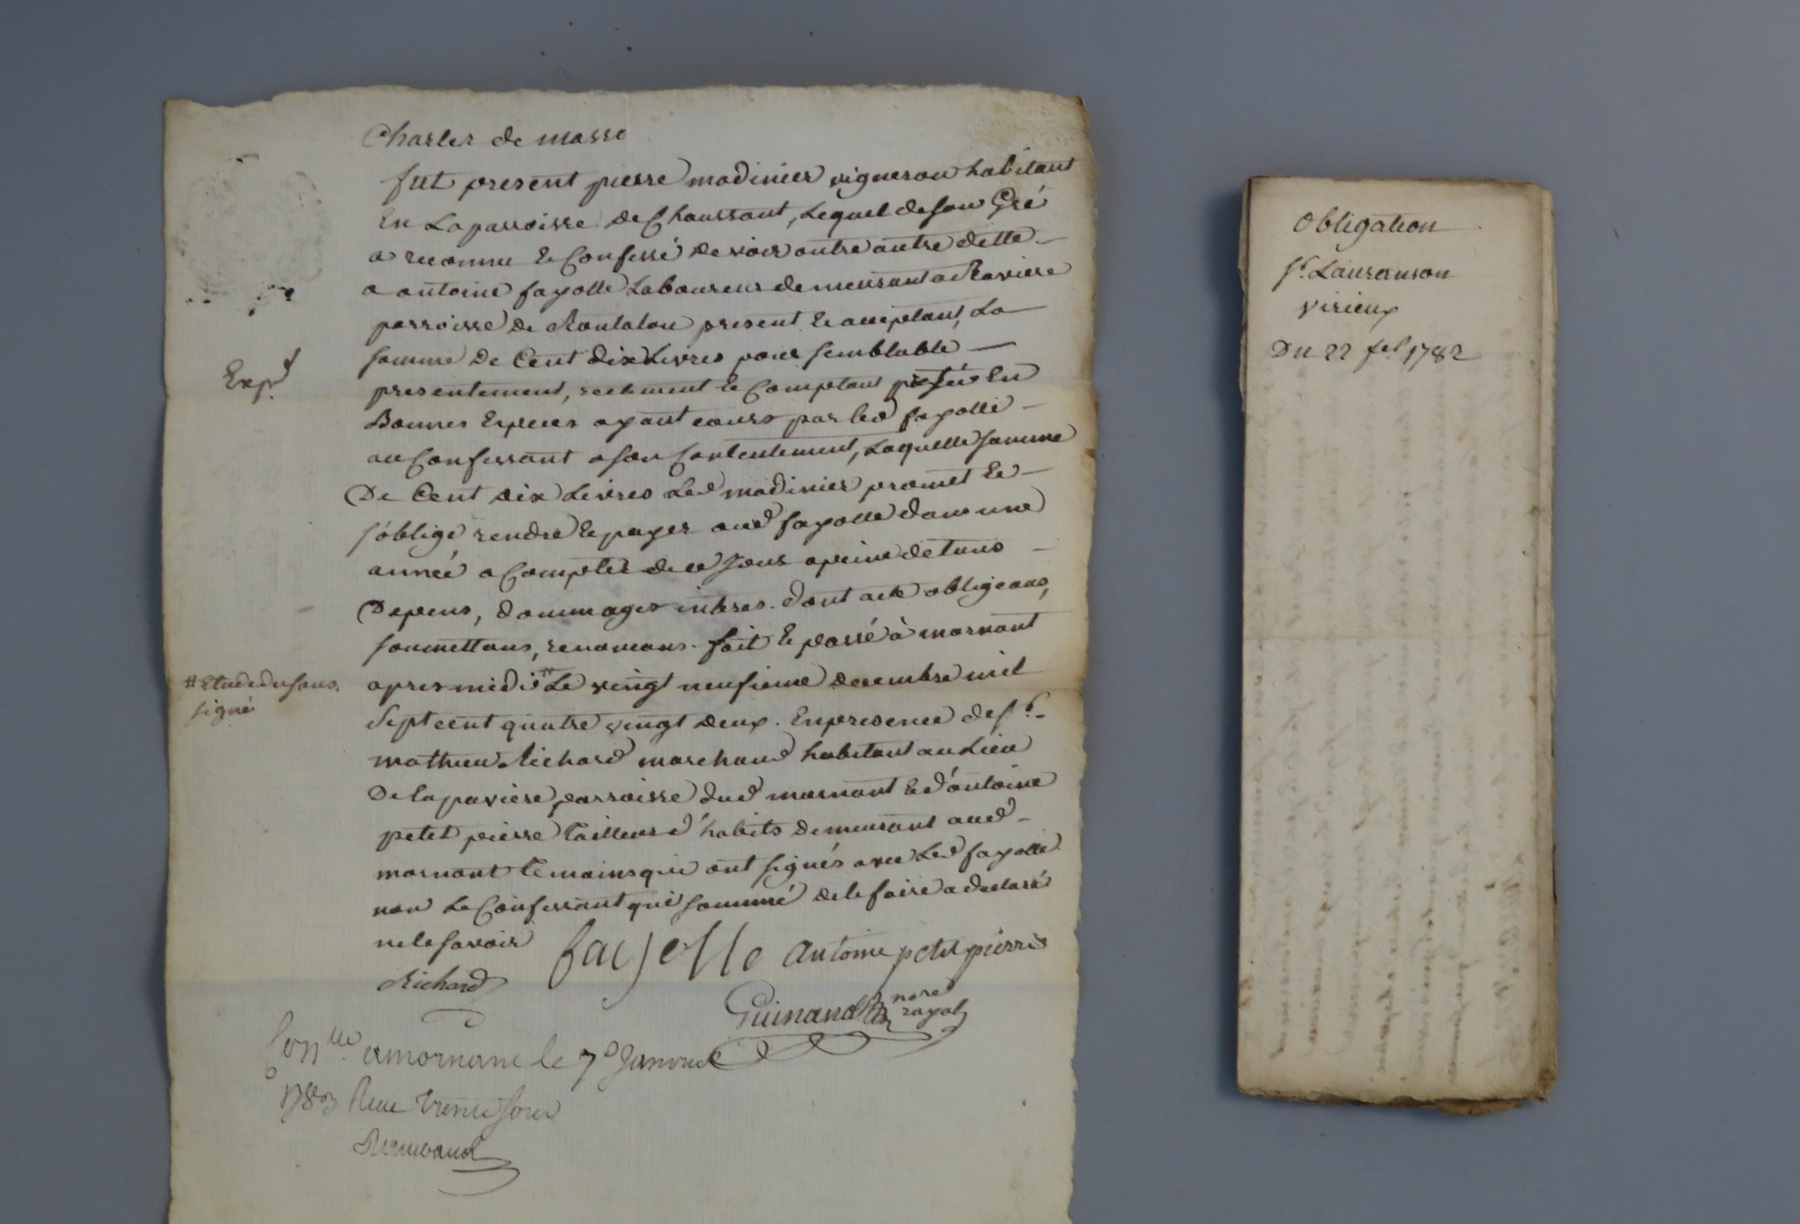 Charles de masso
fut present pierre madinier vigneron habitant
En La parroisse De Chaussant, Lequel de son Gré
a reconnu & Confessé De voir outre autre dette
a antoine fayolle Laboureur demeurant a Raviere
parroisse De Rontalon present & aceptant, La
somme De Cent dix Livres pour semblable
Exp.t
presentement, reelement & Comptant En
Bonnes Especes ayant cours par led fayolle
au Confessant a son Contentement, Laquelle somme
De Cent dix Livres Led madinier promet &
s'oblige rendre & payer aud fayolle dans une
année a Compter de ce Jour a peine de tous
Depens, dommages interes. dont acte obligeans,
soumettans, renonceans. fait & passé à mornant
# Etude du sous
signé
apres midi # Le vingt neufieme decembre mil
Sept cent quatre vingt deux. En presence de Sr
mathieu Richard marchand habitant au Lieu
De la paviere parroisse dud mornant & d'antoine
petit pierre Tailleur d'habits demeurant aud
mornant temoins qui ont signés avec Led fayolle
non Le Confessant qui sommé de le faire a declaré
ne le savoir
fayolle antoine petit pierre
Richard
Guinand nore
royal
Con.lle a mornant le 7e Janvier
1783 Reçu Trente sous
obligation
Sr. Lauranson
virieux
Du 22 fel 1782